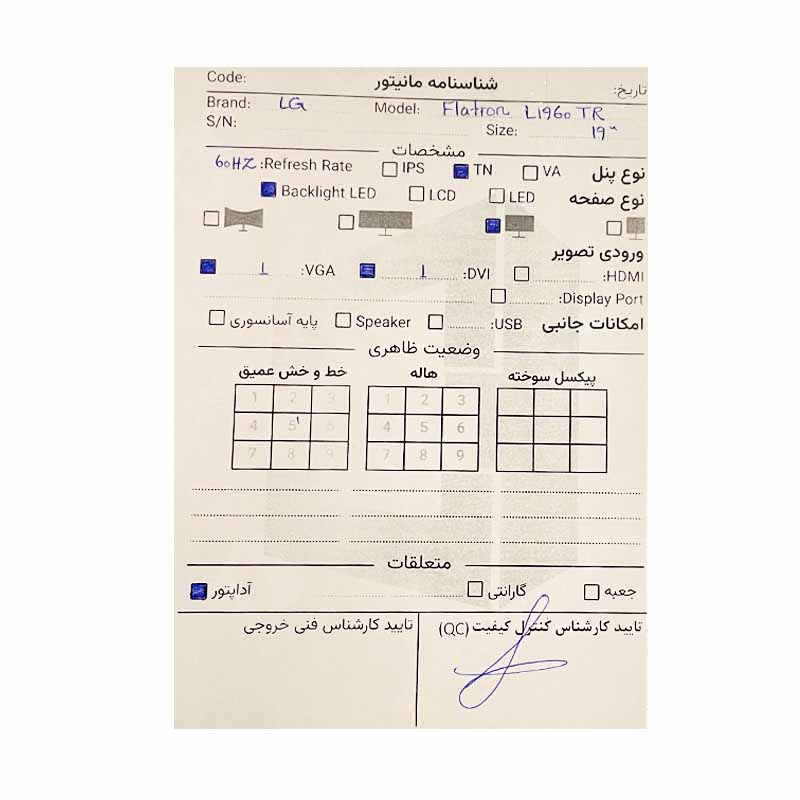 Code: شناسنامه مانیتور تاریخ:
Brand: LG Model: Flatron L1960 TR
S/N: Size: 19"
مشخصات
نوع پنل VA TN IPS Refresh Rate: 60HZ
نوع صفحه LED LCD Backlight LED
ورودی تصویر
HDMI: DVI: 1 VGA: 1
Display Port:
امکانات جانبی USB: Speaker پایه آسانسوری
وضعیت ظاهری
پیکسل سوخته هاله خط و خش عمیق
1 2 3 1 2 3
4 5 6 4 5 ۱ 6
7 8 9 7 8 9
متعلقات
جعبه گارانتی آداپتور
تایید کارشناس کنترل کیفیت (QC) تایید کارشناس فنی خروجی